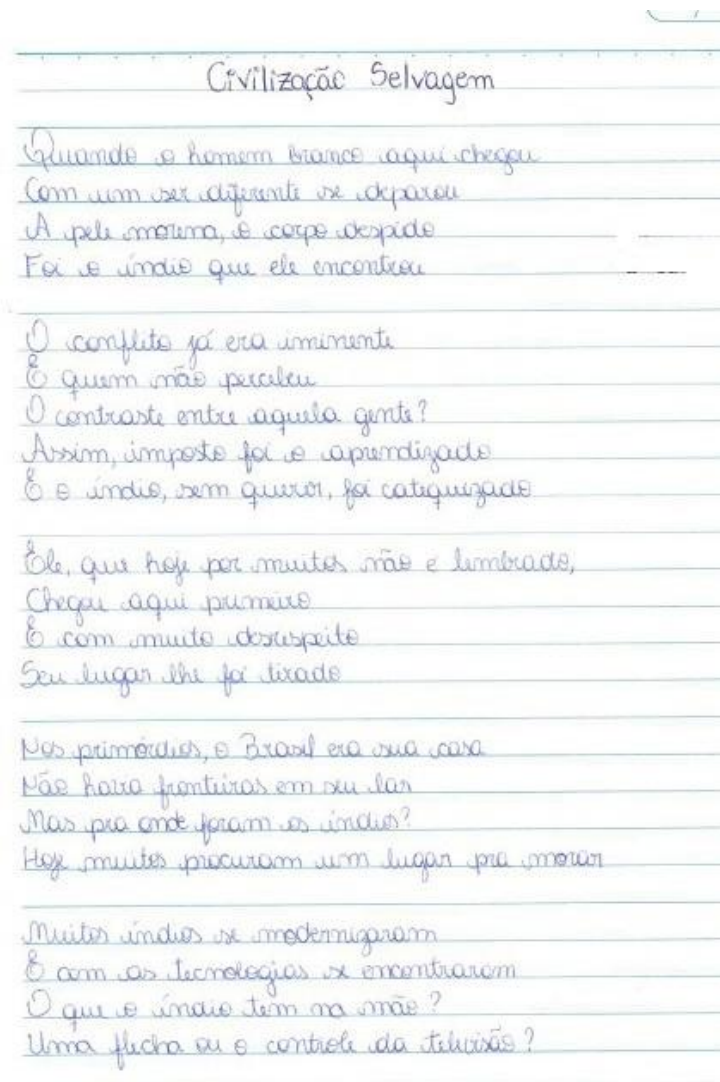 Civilização Selvagem
Quando o homem branco aqui chegou
Com um ser diferente se deparou
A pele morena, o corpo despido
Foi o índio que ele encontrou
O conflito já era iminente
E quem não percebeu
O contraste entre aquela gente?
Assim, imposto foi o aprendizado
E o índio, sem querer, foi catequizado
Ele, que hoje por muitos não e lembrado,
Chegou aqui primeiro
E com muito desrespeito
Seu lugar lhe foi tirado
Nos primórdios, o Brasil era sua casa
Não havia fronteiras em seu lar
Mas pra onde foram os índios?
Hoje muitos procuram um lugar pra morar
Muitos índios se modernizaram
E com as tecnologias se encontraram
O que o índio tem na mão?
Uma flecha ou o controle da televisão?